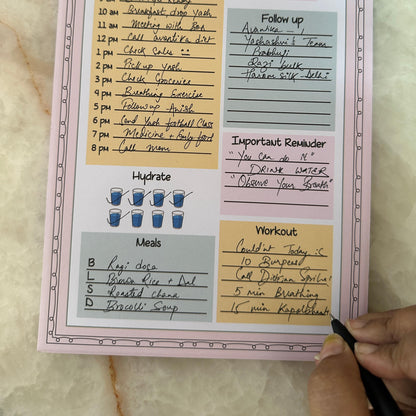 10 am Breakfast, drop Yash
11 am Meeting with
12 pm Call avantika dirt
1 pm Check Sales
2 pm Pick up Yash
3 pm Check Groceries
4 pm Breathing Exercise
5 pm Follow up Anish
6 pm Send Yash football Class
7 pm Medicine + Body food
8 pm Call Mom
Follow up
Avantika
Yashashvi's Team
Prabhuti
Ragi bulk
silk - Delhi
Important Reminder
"You can do it"
DRINK WATER
"Observe Your Breath"
Hydrate
Meals
B Ragi dosa
L Brown Rice + Dal
S Roasted chana
D Brocolli Soup
Workout
Couldn't Today :C
10 Burpees
Call
5 min Breathing
15 min